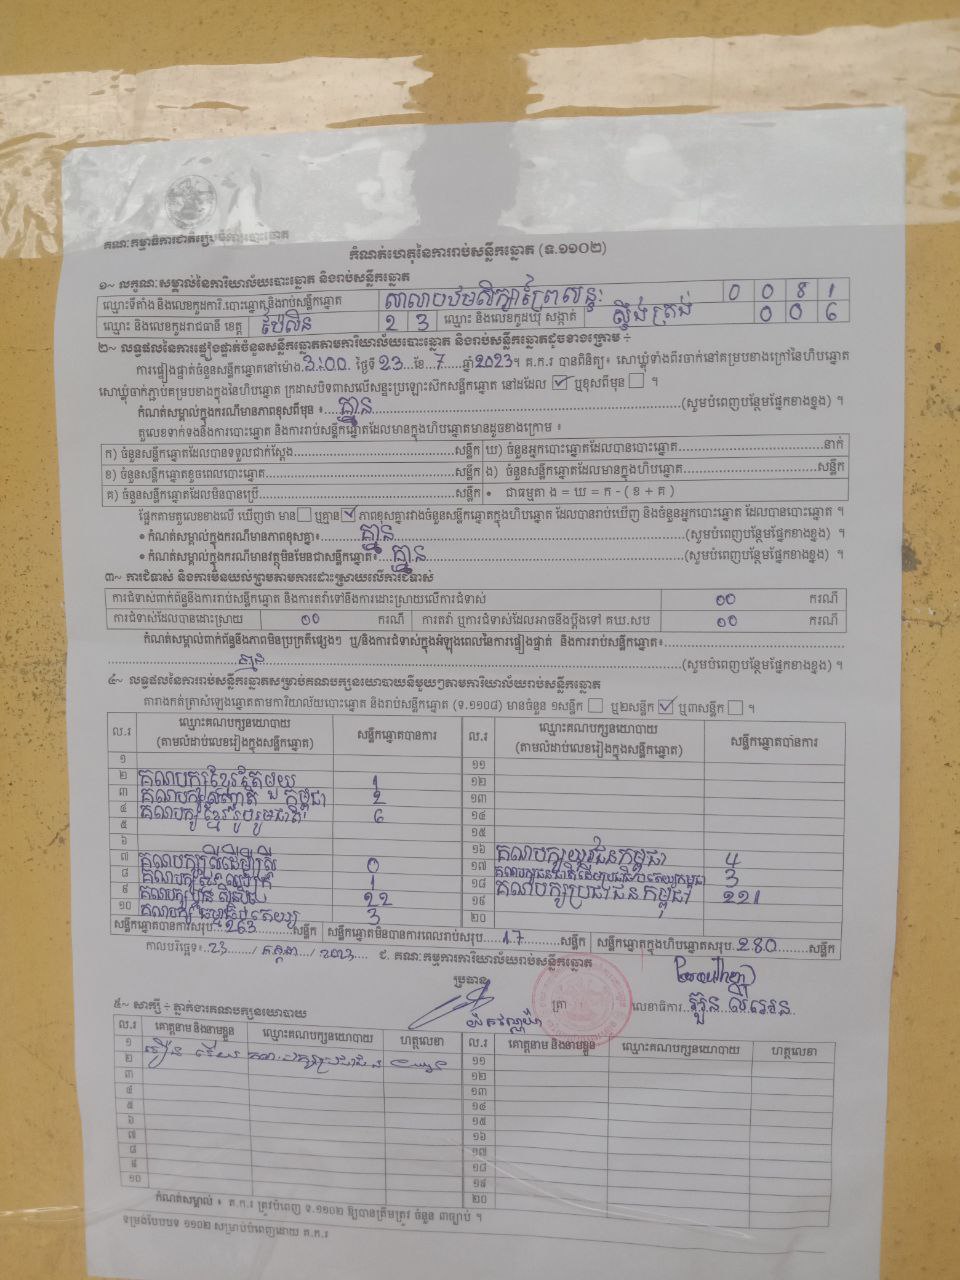 គណៈកម្មាធិការជាតិរៀបចំការបោះឆ្នោត
កំណត់ហេតុនៃការរាប់សន្លឹកឆ្នោត (ទ.១១០២)
១~ លក្ខណៈសម្គាល់នៃការិយាល័យបោះឆ្នោត និងរាប់សន្លឹកឆ្នោត
ឈ្មោះទីតាំង និងលេខកូដការិ.បោះឆ្នោត និងរាប់សន្លឹកឆ្នោត សាលាបឋមសិក្សាព្រៃសន្ទះ 0 0 8 1
ឈ្មោះ និងលេខកូដរាជធានី ខេត្ត ប៉ៃលិន 2 3 ឈ្មោះ និងលេខកូដឃុំ សង្កាត់ ស្ទឹងត្រង់ 0 0 6
២~ លទ្ធផលនៃការផ្ទៀងផ្ទាត់ចំនួនសន្លឹកឆ្នោតតាមការិយាល័យបោះឆ្នោត និងរាប់សន្លឹកឆ្នោតដូចខាងក្រោម ÷
ការផ្ទៀងផ្ទាត់ចំនួនសន្លឹកឆ្នោតនៅម៉ោង 3:00 ថ្ងៃទី 23 ខែ 7 ឆ្នាំ 2023។ គ.ក.រ បានពិនិត្យ៖ សោឃ្លុំទាំងពីរចាក់នៅគម្របខាងក្រៅនៃហិបឆ្នោត
សោឃ្លុំចាក់ភ្ជាប់គម្របខាងក្នុងនៃហិបឆ្នោត ក្រដាសបិទពាសលើសន្ទះប្រឡោះស៊កសន្លឹកឆ្នោត នៅដដែល ☑ ឬខុសពីមុន ☐ ។
កំណត់សម្គាល់ក្នុងករណីមានភាពខុសពីមុន ៖ គ្មាន (សូមបំពេញបន្ថែមផ្នែកខាងខ្នង) ។
តួលេខទាក់ទងនឹងការបោះឆ្នោត និងការរាប់សន្លឹកឆ្នោតដែលមានក្នុងហិបឆ្នោតមានដូចខាងក្រោម ៖
ក) ចំនួនសន្លឹកឆ្នោតដែលបានទទួលជាក់ស្តែង សន្លឹក ឃ) ចំនួនអ្នកបោះឆ្នោតដែលបានបោះឆ្នោត នាក់
ខ) ចំនួនសន្លឹកឆ្នោតខូចពេលបោះឆ្នោត សន្លឹក ង) ចំនួនសន្លឹកឆ្នោតដែលមានក្នុងហិបឆ្នោត សន្លឹក
គ) ចំនួនសន្លឹកឆ្នោតដែលមិនបានប្រើ សន្លឹក • ជាធម្មតា ង = ឃ = ក - ( ខ + គ )
ផ្អែកតាមតួលេខខាងលើ ឃើញថា មាន ☐ ឬគ្មាន ☑ ភាពខុសគ្នារវាងចំនួនសន្លឹកឆ្នោតក្នុងហិបឆ្នោត ដែលបានរាប់ឃើញ និងចំនួនអ្នកបោះឆ្នោត ដែលបានបោះឆ្នោត ។
• កំណត់សម្គាល់ក្នុងករណីមានភាពខុសគ្នា៖ គ្មាន (សូមបំពេញបន្ថែមផ្នែកខាងខ្នង) ។
• កំណត់សម្គាល់ក្នុងករណីមានវត្ថុមិនមែនជាសន្លឹកឆ្នោត៖ គ្មាន (សូមបំពេញបន្ថែមផ្នែកខាងខ្នង) ។
៣~ ការជំទាស់ និងការមិនយល់ព្រមតាមការដោះស្រាយលើការជំទាស់
ការជំទាស់ពាក់ព័ន្ធនឹងការរាប់សន្លឹកឆ្នោត និងការតវ៉ាទៅនឹងការដោះស្រាយលើការជំទាស់ 00 ករណី
ការជំទាស់ដែលបានដោះស្រាយ 00 ករណី ការតវ៉ា ឬការជំទាស់ដែលអាចនឹងប្តឹងទៅ គឃ.សប 00 ករណី
កំណត់សម្គាល់ពាក់ព័ន្ធនឹងភាពមិនប្រក្រតីផ្សេងៗ ឬ/និងការជំទាស់ក្នុងអំឡុងពេលនៃការផ្ទៀងផ្ទាត់ និងការរាប់សន្លឹកឆ្នោត៖
គ្មាន (សូមបំពេញបន្ថែមផ្នែកខាងខ្នង) ។
៤~ លទ្ធផលនៃការរាប់សន្លឹកឆ្នោតសម្រាប់គណបក្សនយោបាយនីមួយៗតាមការិយាល័យរាប់សន្លឹកឆ្នោត
តារាងកត់ត្រាសំឡេងឆ្នោតតាមការិយាល័យបោះឆ្នោត និងរាប់សន្លឹកឆ្នោត (ទ.១១០៨) មានចំនួន ១សន្លឹក ☐ ឬ២សន្លឹក ☑ ឬ៣សន្លឹក ☐ ។
ល.រ ឈ្មោះគណបក្សនយោបាយ (តាមលំដាប់លេខរៀងក្នុងសន្លឹកឆ្នោត) សន្លឹកឆ្នោតបានការ ល.រ ឈ្មោះគណបក្សនយោបាយ (តាមលំដាប់លេខរៀងក្នុងសន្លឹកឆ្នោត) សន្លឹកឆ្នោតបានការ
១ ១១
២ គណបក្សខ្មែរតែមួយ 1 ១២
៣ គណបក្ស កម្ពុជា 2 ១៣
៤ គណបក្សខ្មែររួបរួមជាតិ 6 ១៤
៥ ១៥
៦ ១៦ គណបក្សយុវជនកម្ពុជា 4
៧ គណបក្សស្ត្រីដើម្បីស្ត្រី 0 ១៧ 3
៨ 1 ១៨ គណបក្សប្រជាជនកម្ពុជា 221
៩ គណបក្សហ្វ៊ុនស៊ិនប៉ិច 22 ១៩
១០ គណបក្សធម្មាធិបតេយ្យ 3 ២០
សន្លឹកឆ្នោតបានការសរុប 263 សន្លឹក សន្លឹកឆ្នោតមិនបានការពេលរាប់សរុប 17 សន្លឹក សន្លឹកឆ្នោតក្នុងហិបឆ្នោតសរុប 280 សន្លឹក
កាលបរិច្ឆេទ៖ 23 / កក្កដា / 2023 ជ. គណៈកម្មការការិយាល័យរាប់សន្លឹកឆ្នោត
ប្រធាន ត្រា លេខាធិការ
៥~ សាក្សី ÷ ភ្នាក់ងារគណបក្សនយោបាយ
ល.រ គោត្តនាម និងនាមខ្លួន ឈ្មោះគណបក្សនយោបាយ ហត្ថលេខា ល.រ គោត្តនាម និងនាមខ្លួន ឈ្មោះគណបក្សនយោបាយ ហត្ថលេខា
១ គណបក្សប្រជាជន ១១
២ ១២
៣ ១៣
៤ ១៤
៥ ១៥
៦ ១៦
៧ ១៧
៨ ១៨
៩ ១៩
១០ ២០
កំណត់សម្គាល់ ៖ គ.ក.រ ត្រូវបំពេញ ទ.១១០២ ឱ្យបានត្រឹមត្រូវ ចំនួន ៣ច្បាប់ ។
ទម្រង់បែបបទ ១១០២ សម្រាប់បំពេញដោយ គ.ក.រ